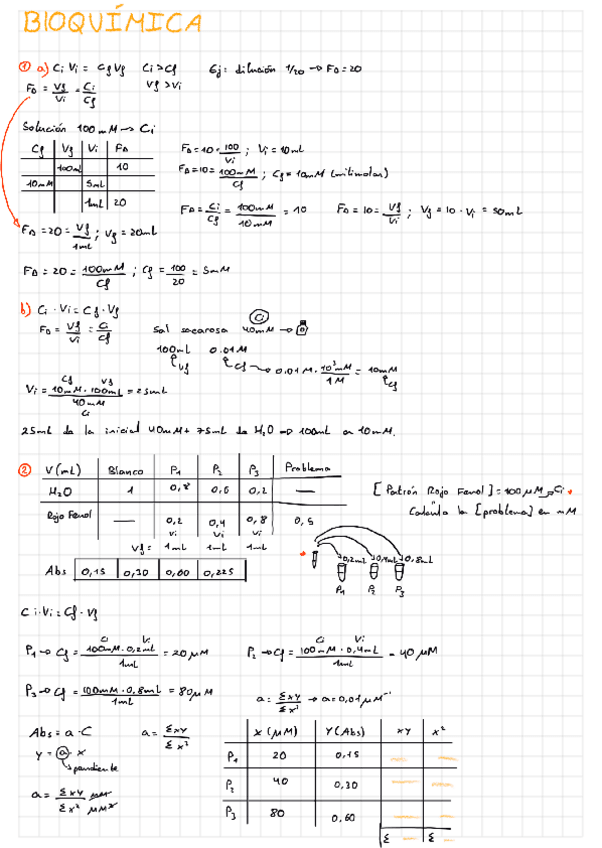 BIOQUÍMICA
① a) Ci Vi = Cf Vf   Ci > Cf   Ej: dilución 1/20 → FD = 20
FD = Vf/Vi = Ci/Cf   Vf > Vi
Solución 100 mM → Ci
Cf | Vf | Vi | FD
100mL | 10
10mM | 5mL
1mL | 20
FD = 10 = 100/Vi ; Vi = 10mL
FD = 10 = 100mM/Cf ; Cf = 10mM (milimolar)
FD = Ci/Cf = 100mM/10mM = 10   FD = 10 = Vf/Vi ; Vf = 10 · Vi = 50mL
FD = 20 = Vf/1mL ; Vf = 20mL
FD = 20 = 100mM/Cf ; Cf = 100/20 = 5mM
b) Ci · Vi = Cf · Vf
FD = Vf/Vi = Ci/Cf   Sal sacarosa 40mM → Ci
100mL   0.01M
Vf   Cf → 0.01M · 10³mM/1M = 10mM Cf
Vi = 10mM · 100mL/40mM = 25mL
Cf Vf Ci
25mL de la inicial 40mM + 75mL de H₂O ⇒ 100mL a 10mM.
② V(mL) | Blanco | P1 | P2 | P3 | Problema
H₂O | 1 | 0,8 | 0,6 | 0,2 | —
Rojo Fenol | — | 0,2 | 0,4 | 0,8 | 0,5
Vi Vi Vi
Vf = 1mL 1mL 1mL
[Patrón Rojo Fenol] = 100 μM → Ci
Calcula la [problema] en mM
0,2mL 0,4mL 0,8mL
P1 P2 P3
Abs | 0,15 | 0,30 | 0,60 | 0,225
Ci · Vi = Cf · Vf
P1 → Cf = 100mM · 0,2mL/1mL = 20 μM   P2 → Cf = 100mM · 0,4mL/1mL = 40 μM
Ci Vi   Ci Vi
P3 → Cf = 100mM · 0,8mL/1mL = 80 μM   a = Σxy/Σx² → a = 0,01 μM⁻¹
Abs = a · C   a = Σxy/Σx²
y = a · x
pendiente
a = Σxy/Σx²
X (μM) | Y (Abs) | XY | X²
P1 | 20 | 0,15
P2 | 40 | 0,30
P3 | 80 | 0,60
Σ Σ